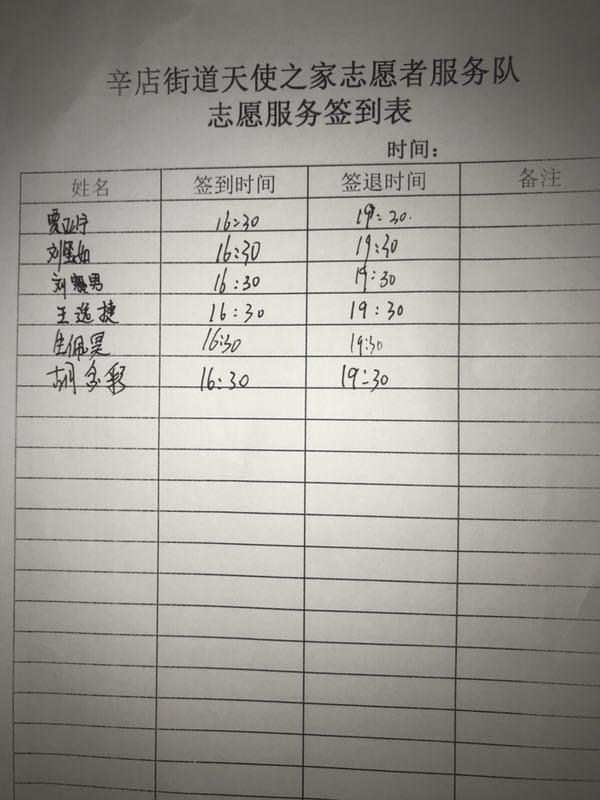 辛店街道天使之家志愿者服务队
志愿服务签到表
时间：
姓名 签到时间 签退时间 备注
16:30 19:30.
刘 如 16:30 19:30
刘 男 16:30 19:30
王逸捷 16:30 19:30
佩昊 16:30 19:30
胡 彩 16:30 19:30